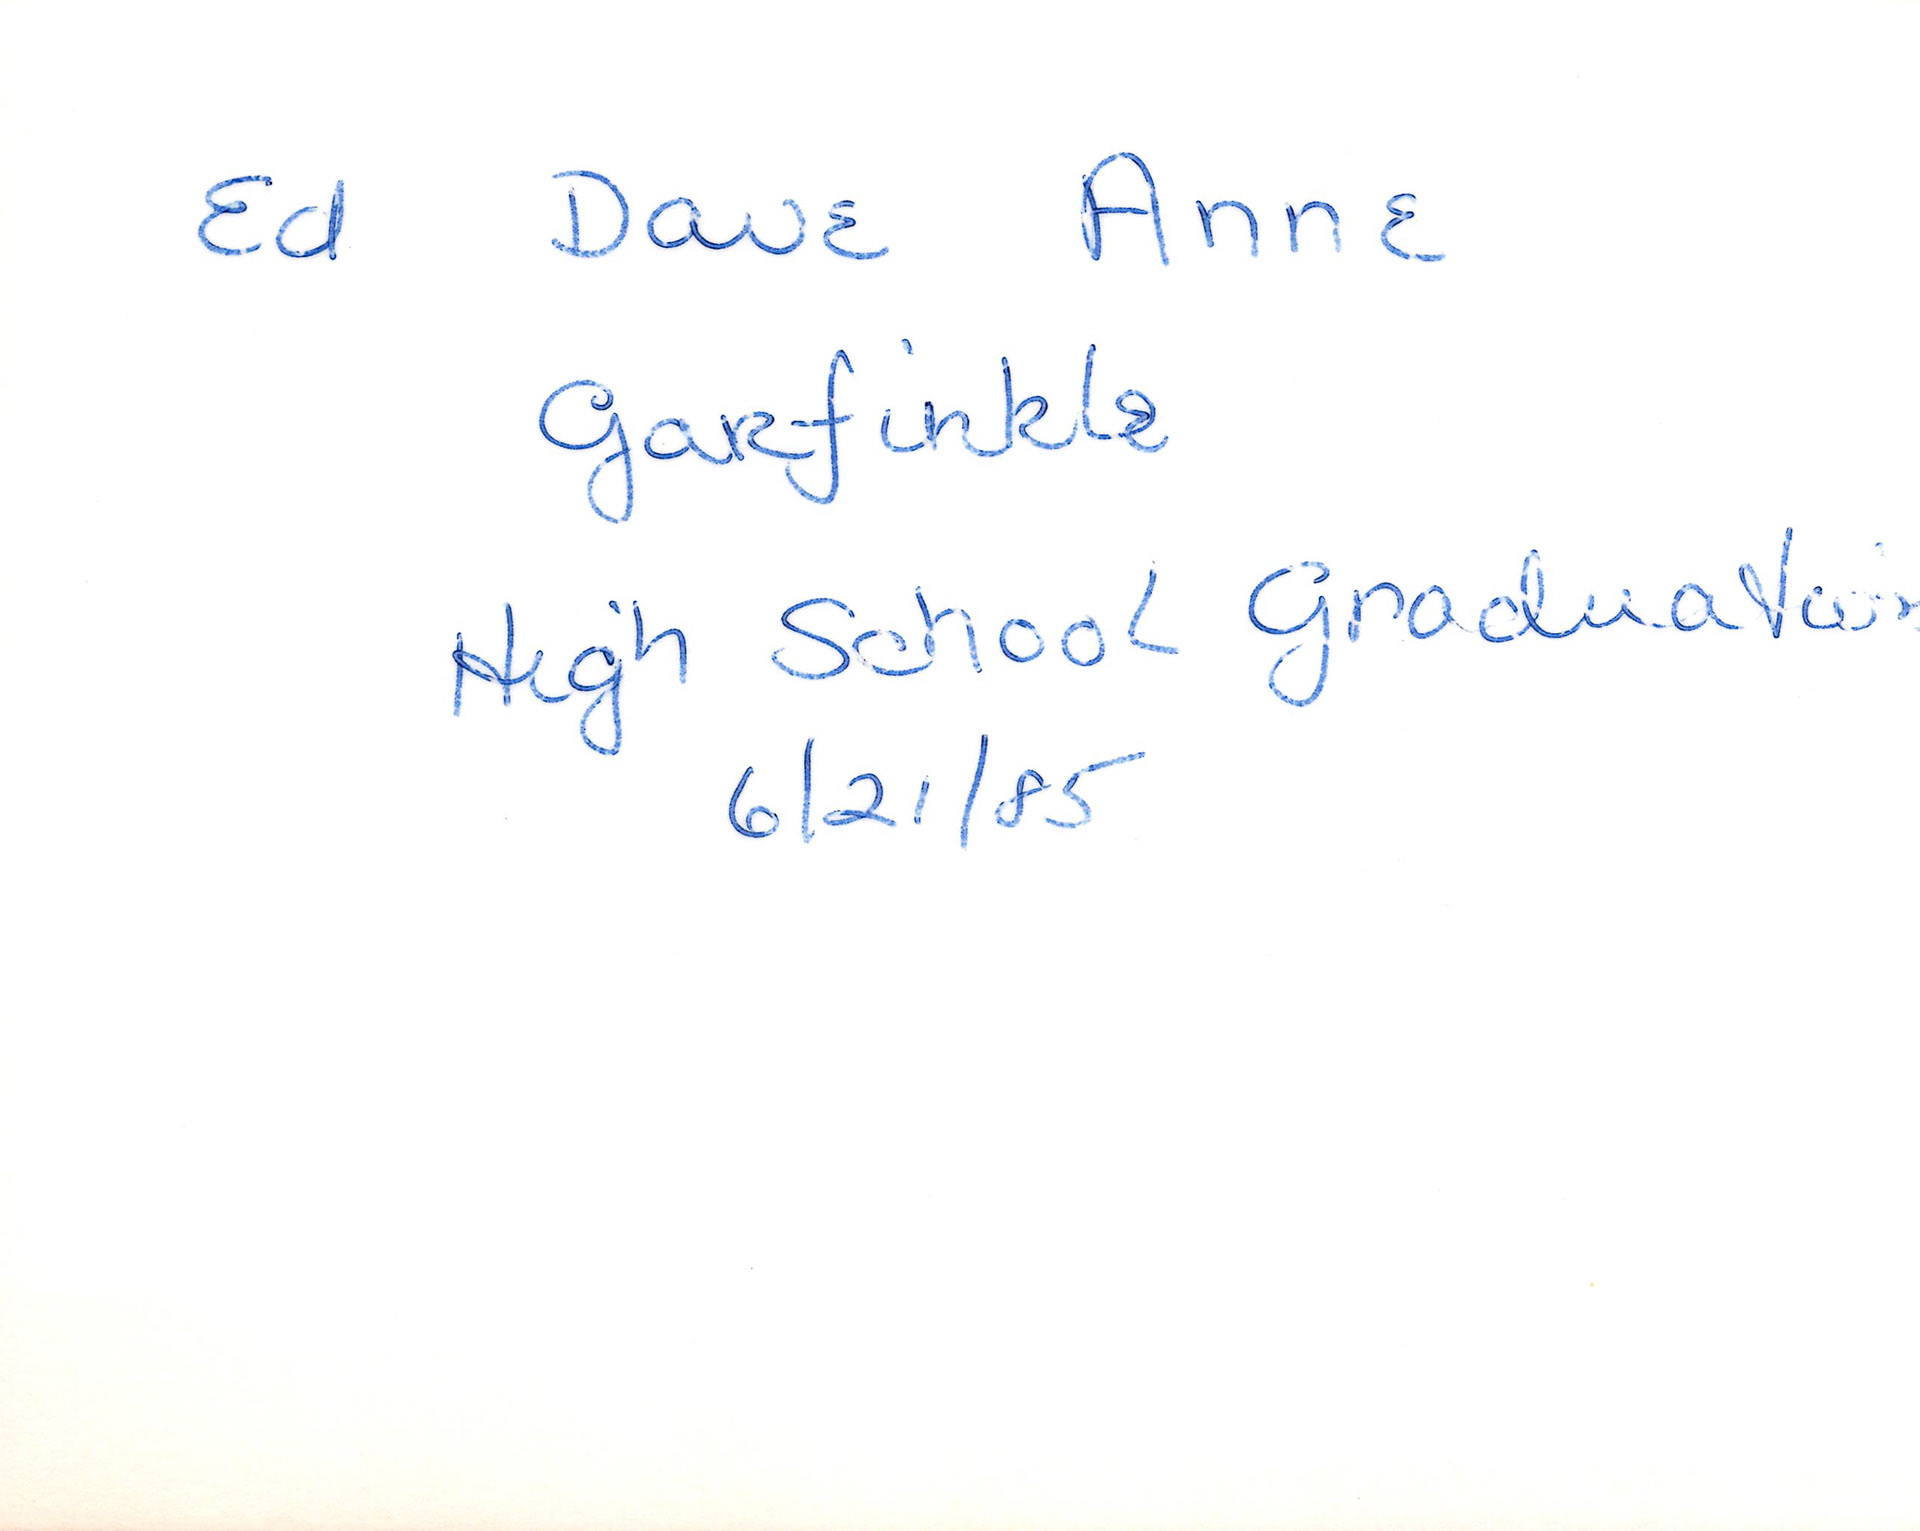 Ed Dave Anne
Garfinkle
High School Graduation
6/21/85